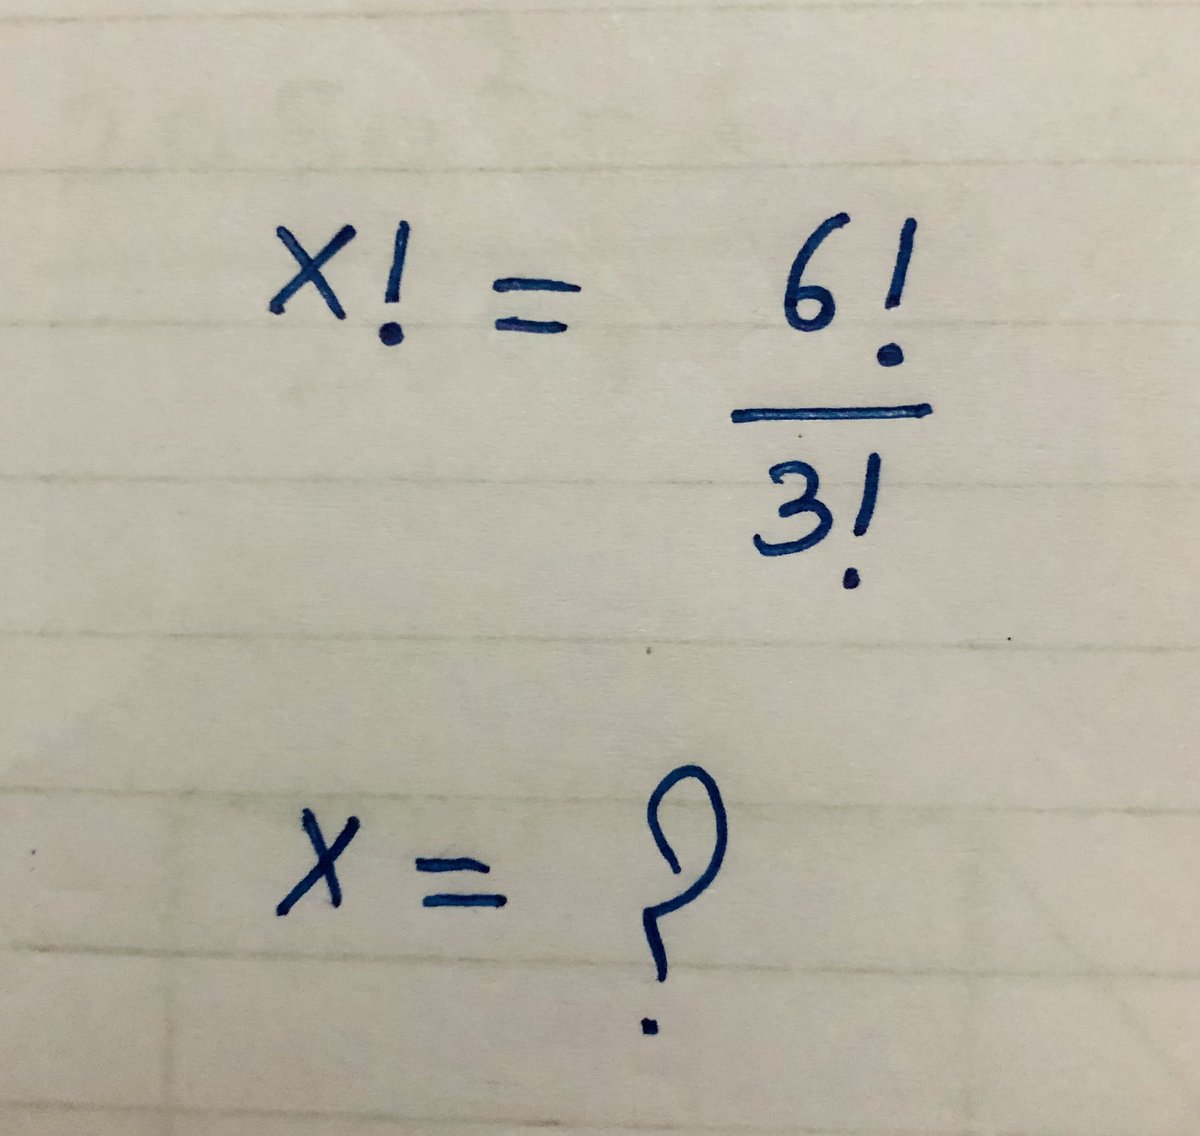 x! = 6!
3!
x = ?